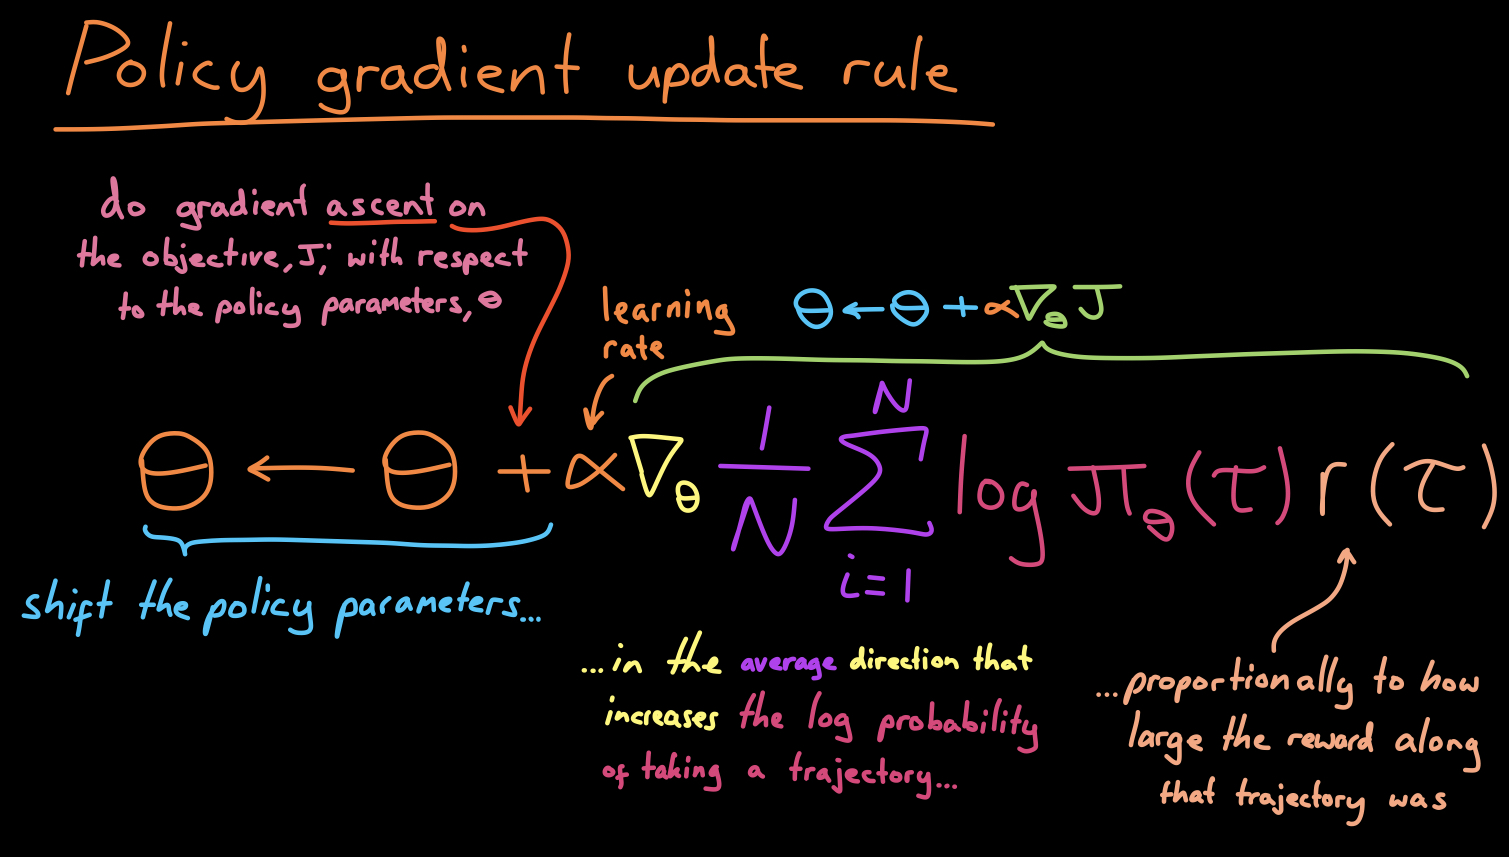 Policy gradient update rule
do gradient ascent on
the objective, J, with respect
to the policy parameters, θ
learning
rate
θ ← θ + α∇θ J
θ ← θ + α∇θ 1/N N∑i=1 log πθ(τ) r(τ)
shift the policy parameters...
...in the average direction that
increases the log probability
of taking a trajectory...
...proportionally to how
large the reward along
that trajectory was